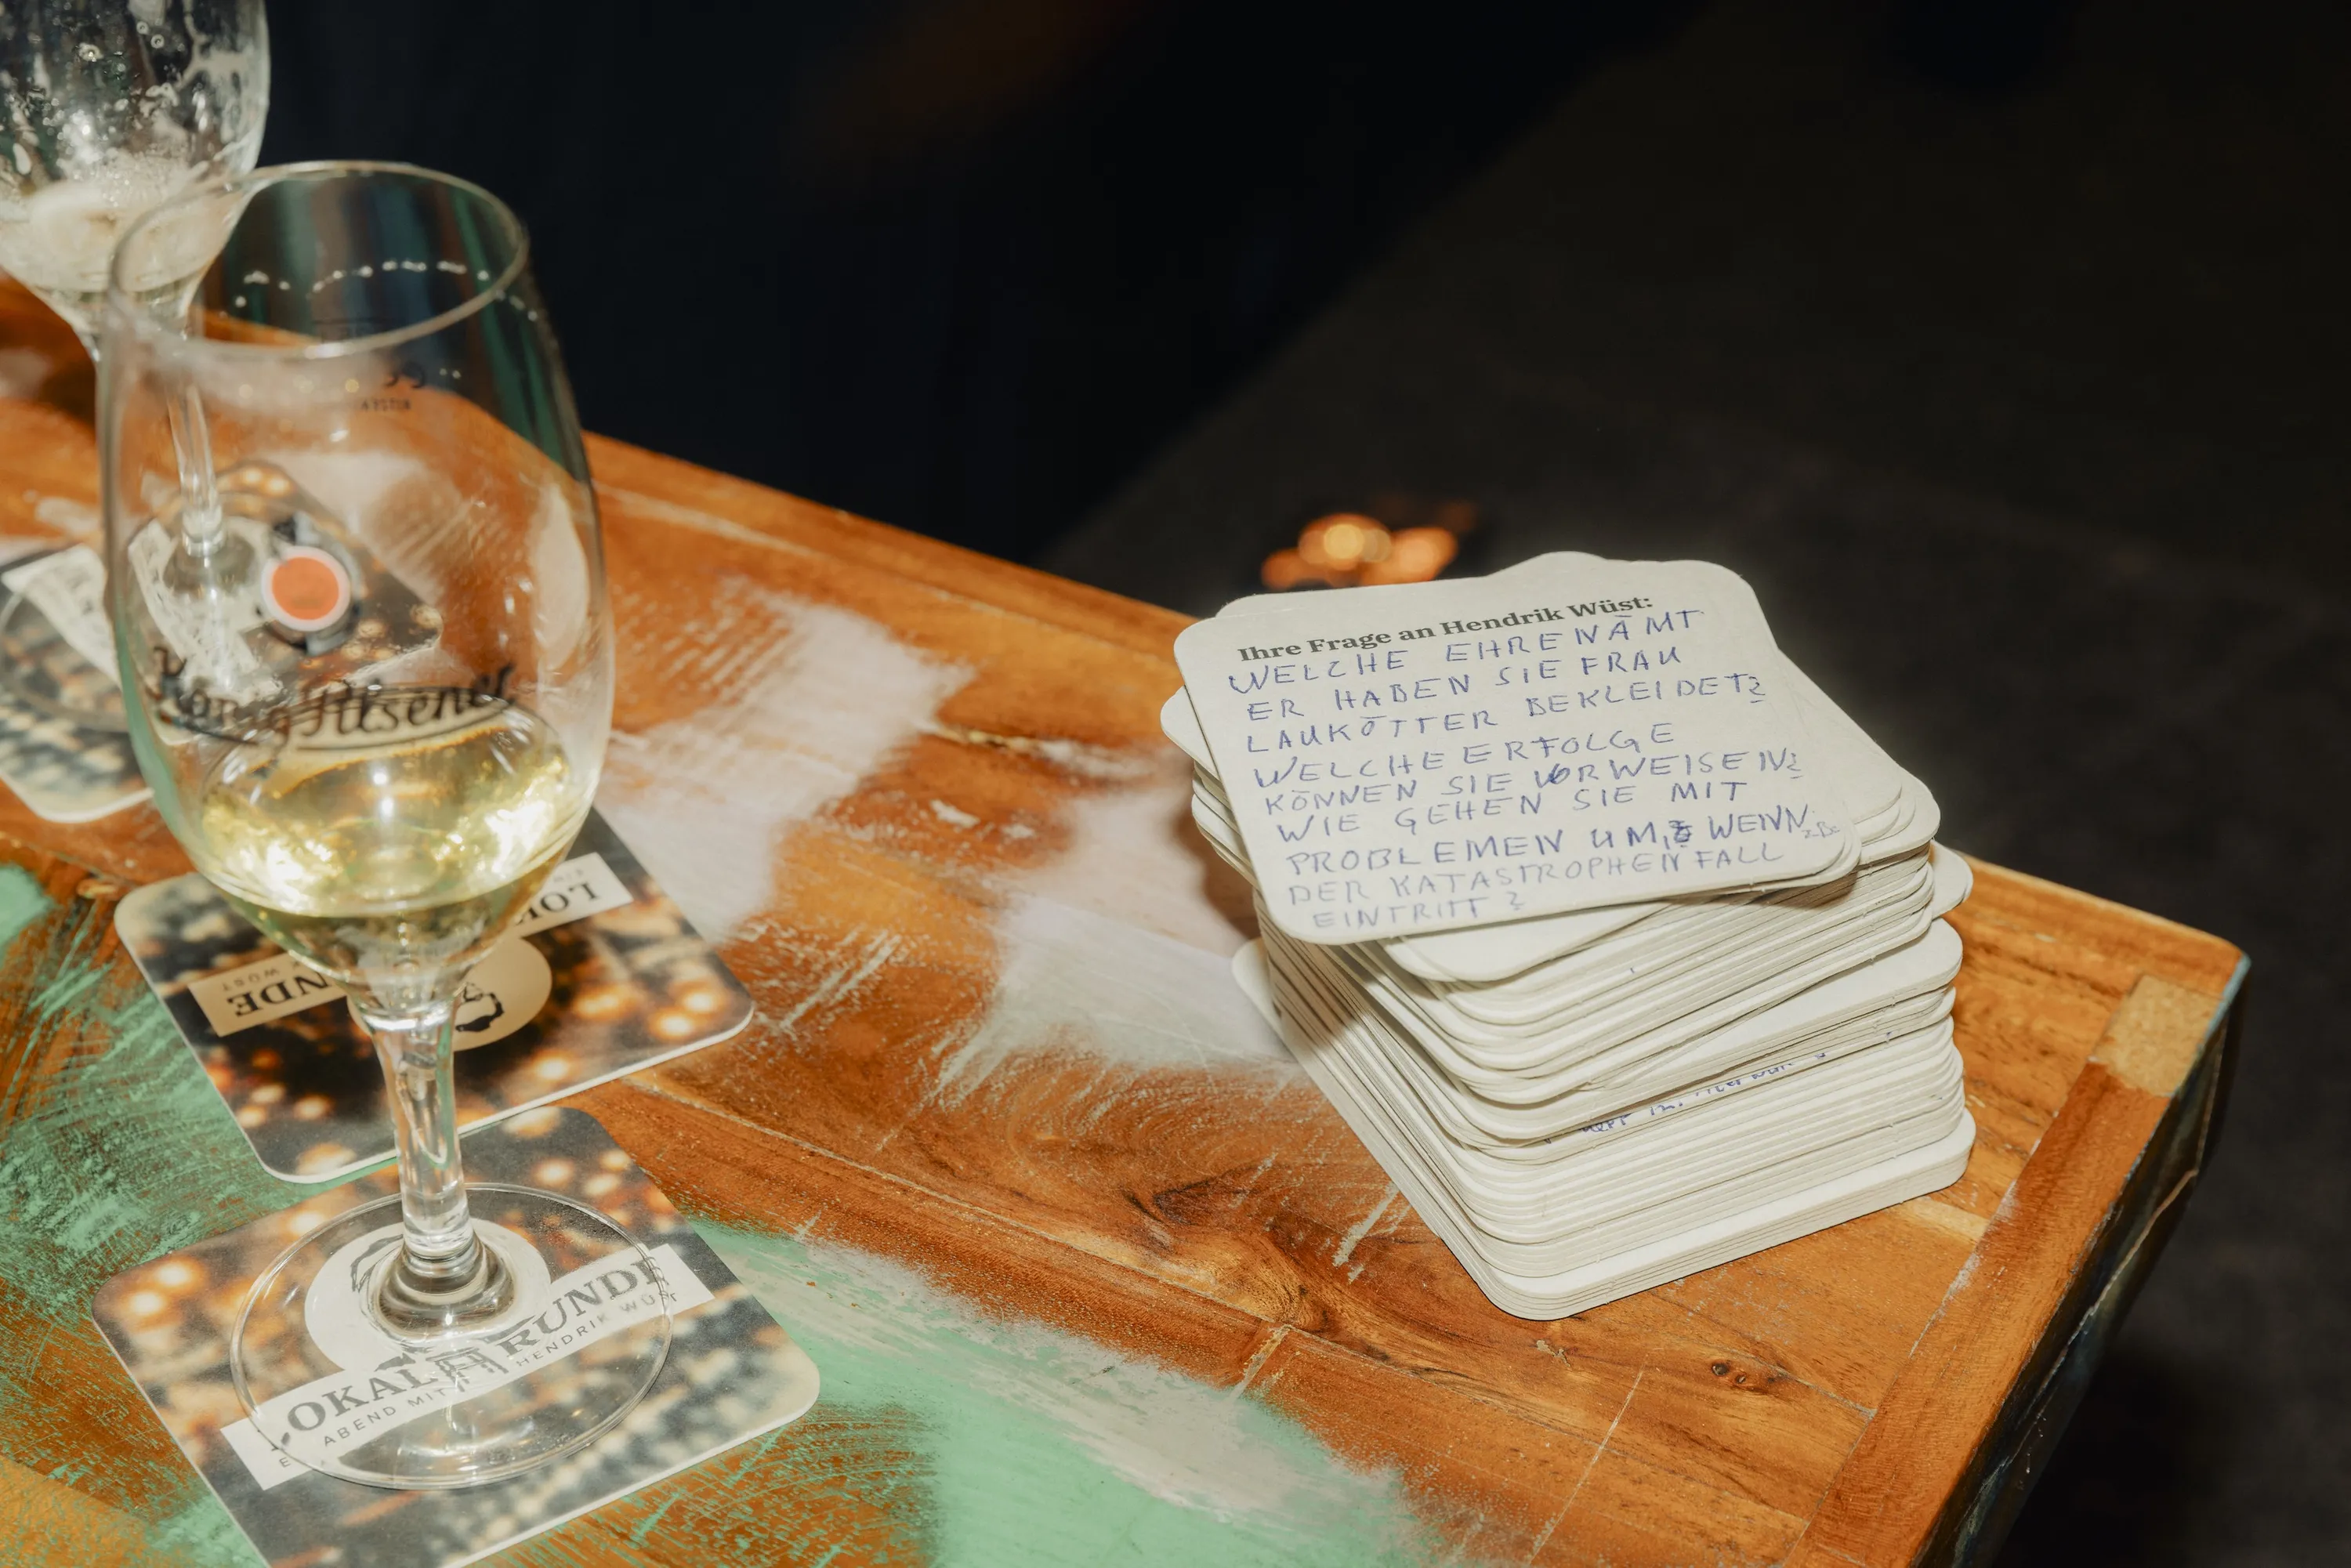 König Pilsener
Ihre Frage an Hendrik Wüst:
WELCHE EHRENÄMT
ER HABEN SIE FRAU
LAUKÖTTER BEKLEIDET?
WELCHE ERFOLGE
KÖNNEN SIE VORWEISEN?
WIE GEHEN SIE MIT
PROBLEMEN UM, WENN z.B.
DER KATASTROPHENFALL
EINTRITT?
NDE
WÜST
LOK
OKAL RUNDE
ABEND MIT HENDRIK WÜST